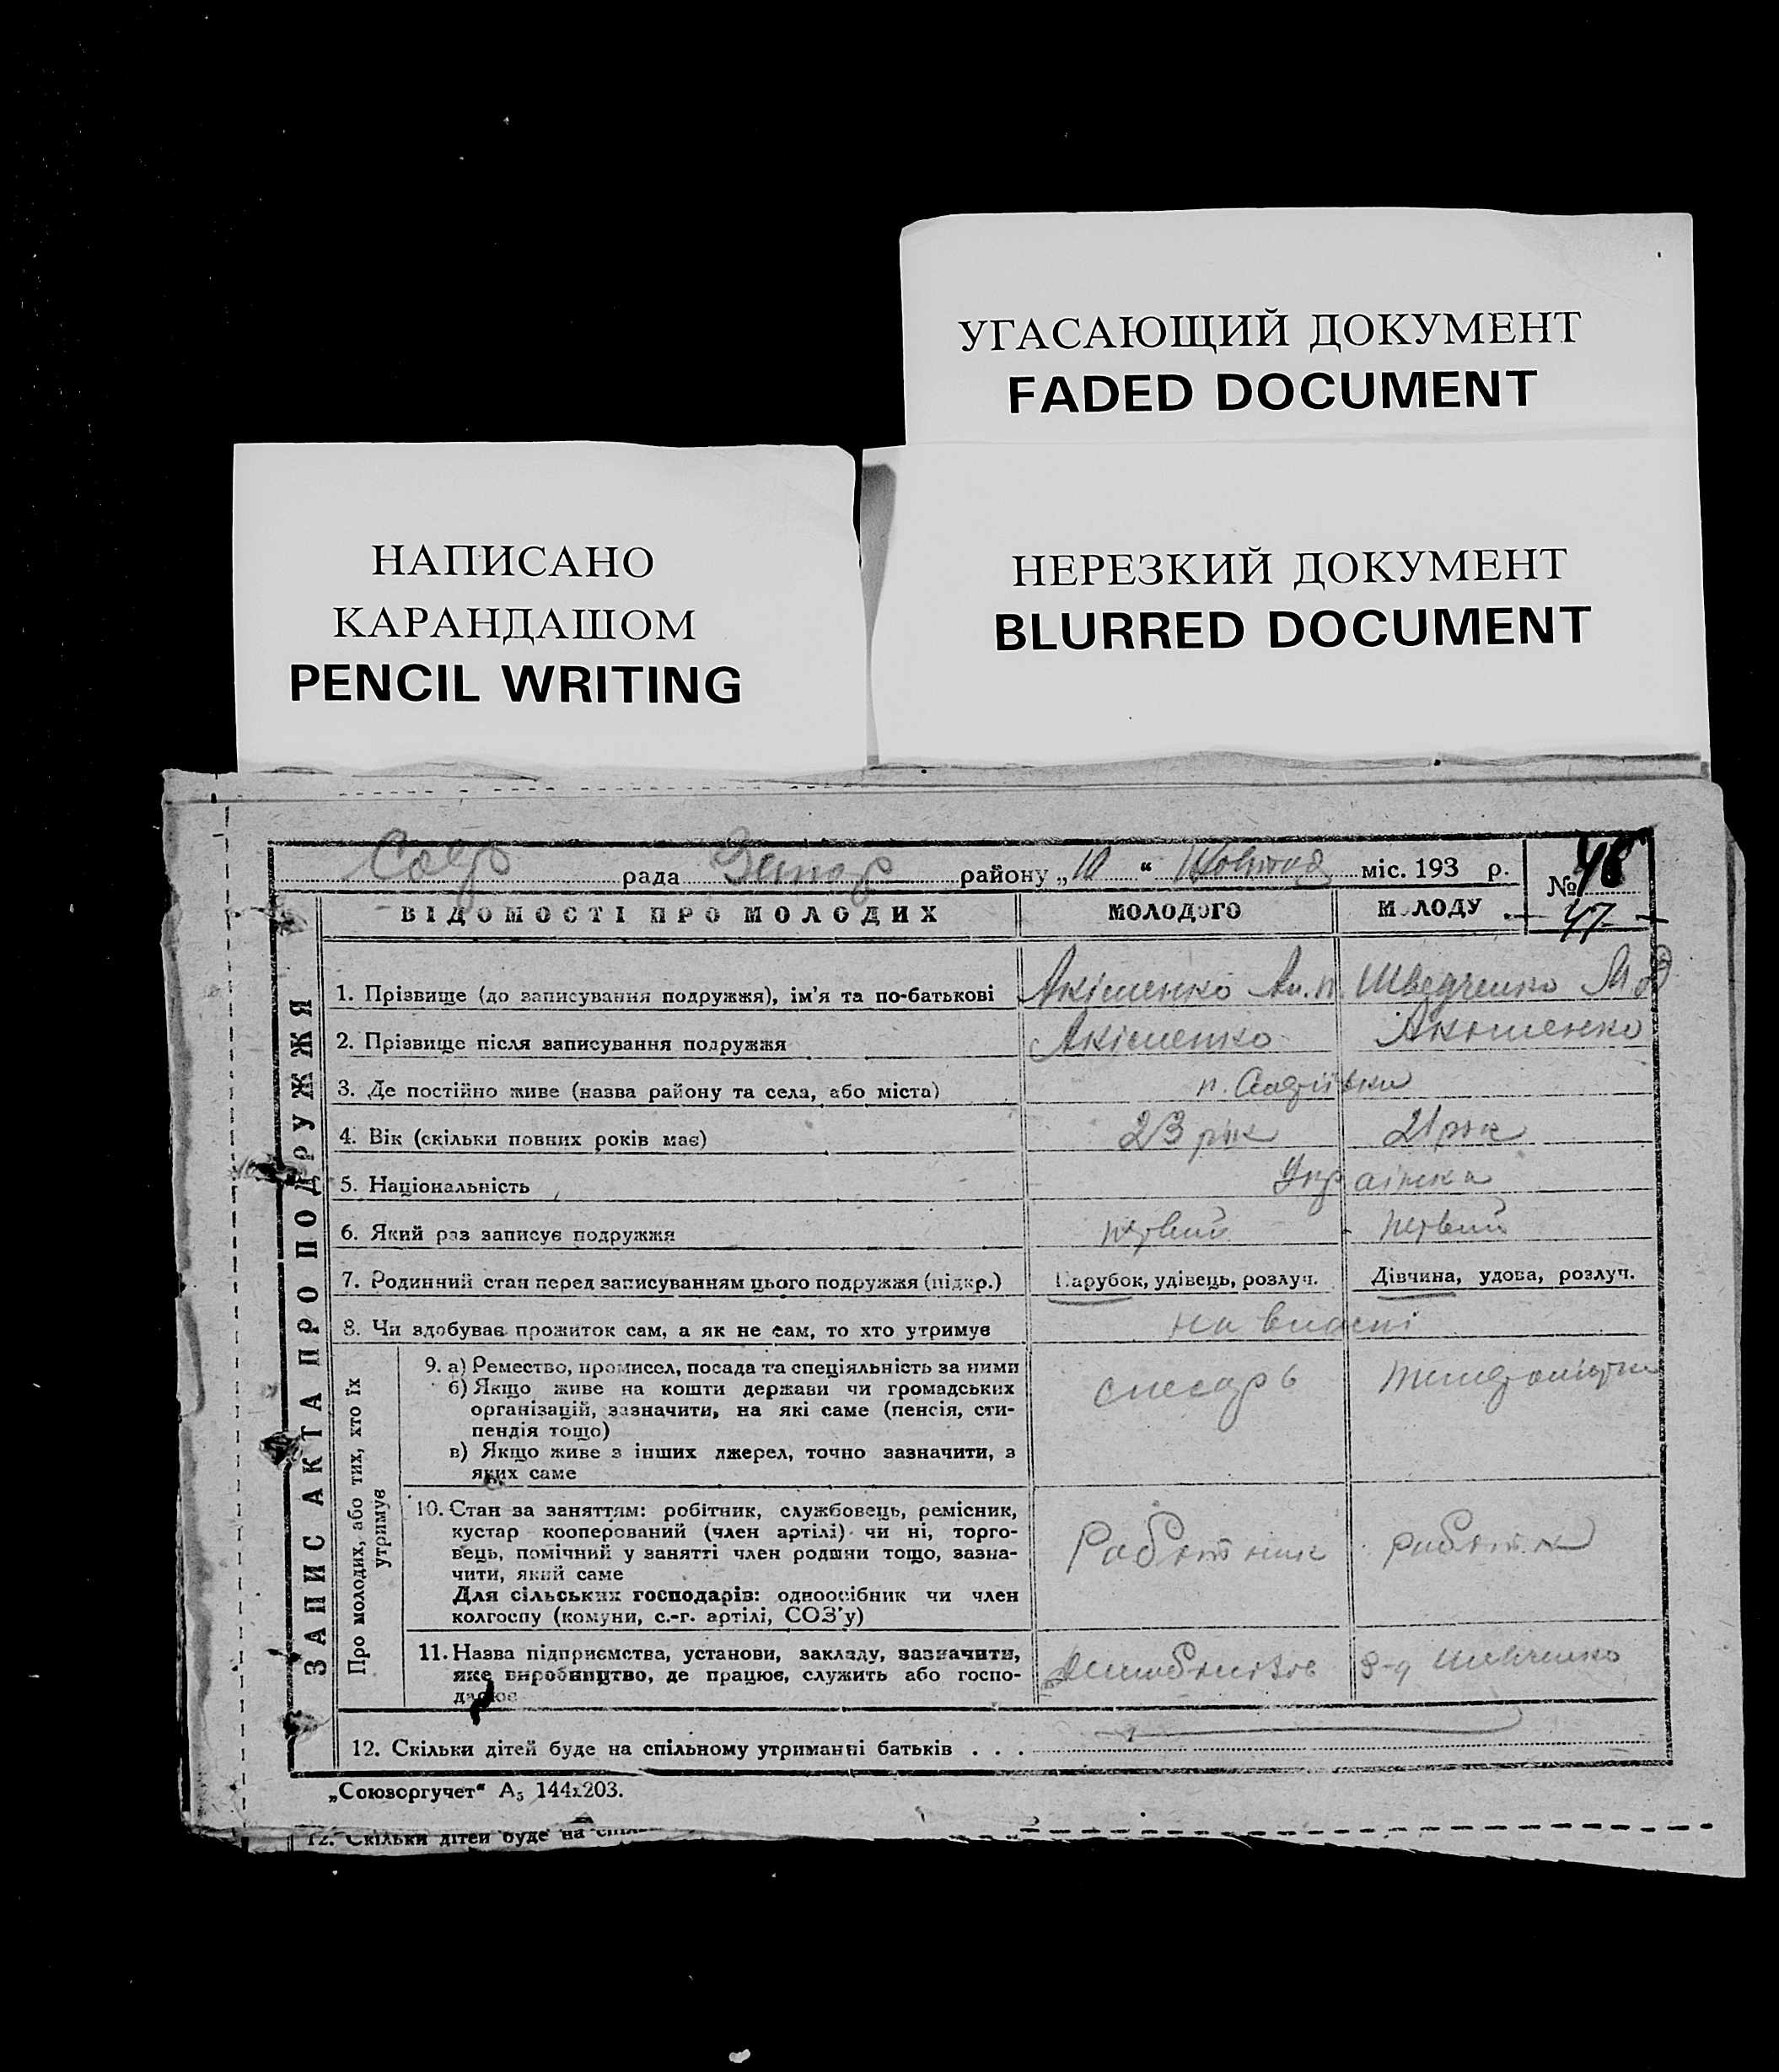 УГАСАЮЩИЙ ДОКУМЕНТ
FADED DOCUMENT
НАПИСАНО
КАРАНДАШОМ
PENCIL WRITING
НЕРЕЗКИЙ ДОКУМЕНТ
BLURRED DOCUMENT
рада району „10 “ міс. 193 р.
№ 48
47
ВІДОМОСТІ ПРО МОЛОДИХ МОЛОДОГО МОЛОДУ
ЗАПИС АКТА ПРО ПОДРУЖЖЯ
1. Прізвище (до записування подружжя), ім’я та по-батькові Акіменко Ан. П. Шведченко М
2. Прізвище після записування подружжя Акіменко Акименко
3. Де постійно живе (назва району та села, або міста)
4. Вік (скільки повних років має) 23 рок 21 рок
5. Національність Українка
6. Який раз записує подружжя первий первий
7. Родинний стан перед записуванням цього подружжя (підкр.) Парубок, удівець, розлуч. Дівчина, удова, розлуч.
8. Чи здобував прожиток сам, а як не сам, то хто утримує на власні
Про молодих, або тих, хто їх утримує
9. а) Ремество, промисел, посада та спеціяльність за ними слесарь
б) Якщо живе на кошти держави чи громадських
організацій, зазначити, на які саме (пенсія, сти-
пендія тощо)
в) Якщо живе з інших джерел, точно зазначити, з
яких саме
10. Стан за заняттям: робітник, службовець, ремісник,
кустар кооперований (член артілі) чи ні, торго-
вець, помічний у занятті член родини тощо, зазна-
чити, який саме
Для сільських господарів: одноосібник чи член
колгоспу (комуни, с.-г. артілі, СОЗ’у)
Работник работн
11. Назва підприємства, установи, закладу, зазначити,
яке виробництво, де працює, служить або госпо-
дарює
З-д Шевченко
12. Скільки дітей буде на спільному утриманні батьків . . .
„Союзоргучет“ А₅ 144х203.
12. Скільки дітей буде на